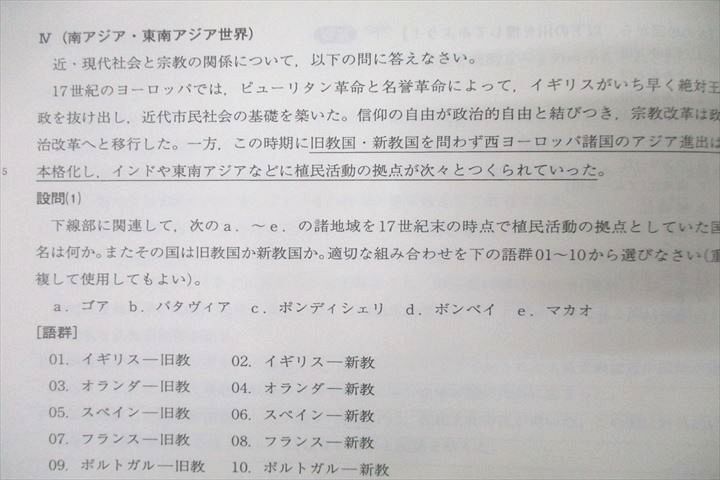 Ⅳ (南アジア・東南アジア世界)
近・現代社会と宗教の関係について，以下の問に答えなさい。
17世紀のヨーロッパでは，ピューリタン革命と名誉革命によって，イギリスがいち早く絶対王
政を抜け出し，近代市民社会の基礎を築いた。信仰の自由が政治的自由と結びつき，宗教改革は政
治改革へと移行した。一方，この時期に旧教国・新教国を問わず西ヨーロッパ諸国のアジア進出は
5 本格化し，インドや東南アジアなどに植民活動の拠点が次々とつくられていった。
設問(1)
下線部に関連して，次のa．～e．の諸地域を17世紀末の時点で植民活動の拠点としていた国
名は何か。またその国は旧教国か新教国か。適切な組み合わせを下の語群01～10から選びなさい(重
複して使用してもよい)。
a．ゴア b．バタヴィア c．ポンディシェリ d．ボンベイ e．マカオ
[語群]
01. イギリス―旧教 02. イギリス―新教
03. オランダ―旧教 04. オランダ―新教
05. スペイン―旧教 06. スペイン―新教
07. フランス―旧教 08. フランス―新教
09. ポルトガル―旧教 10. ポルトガル―新教